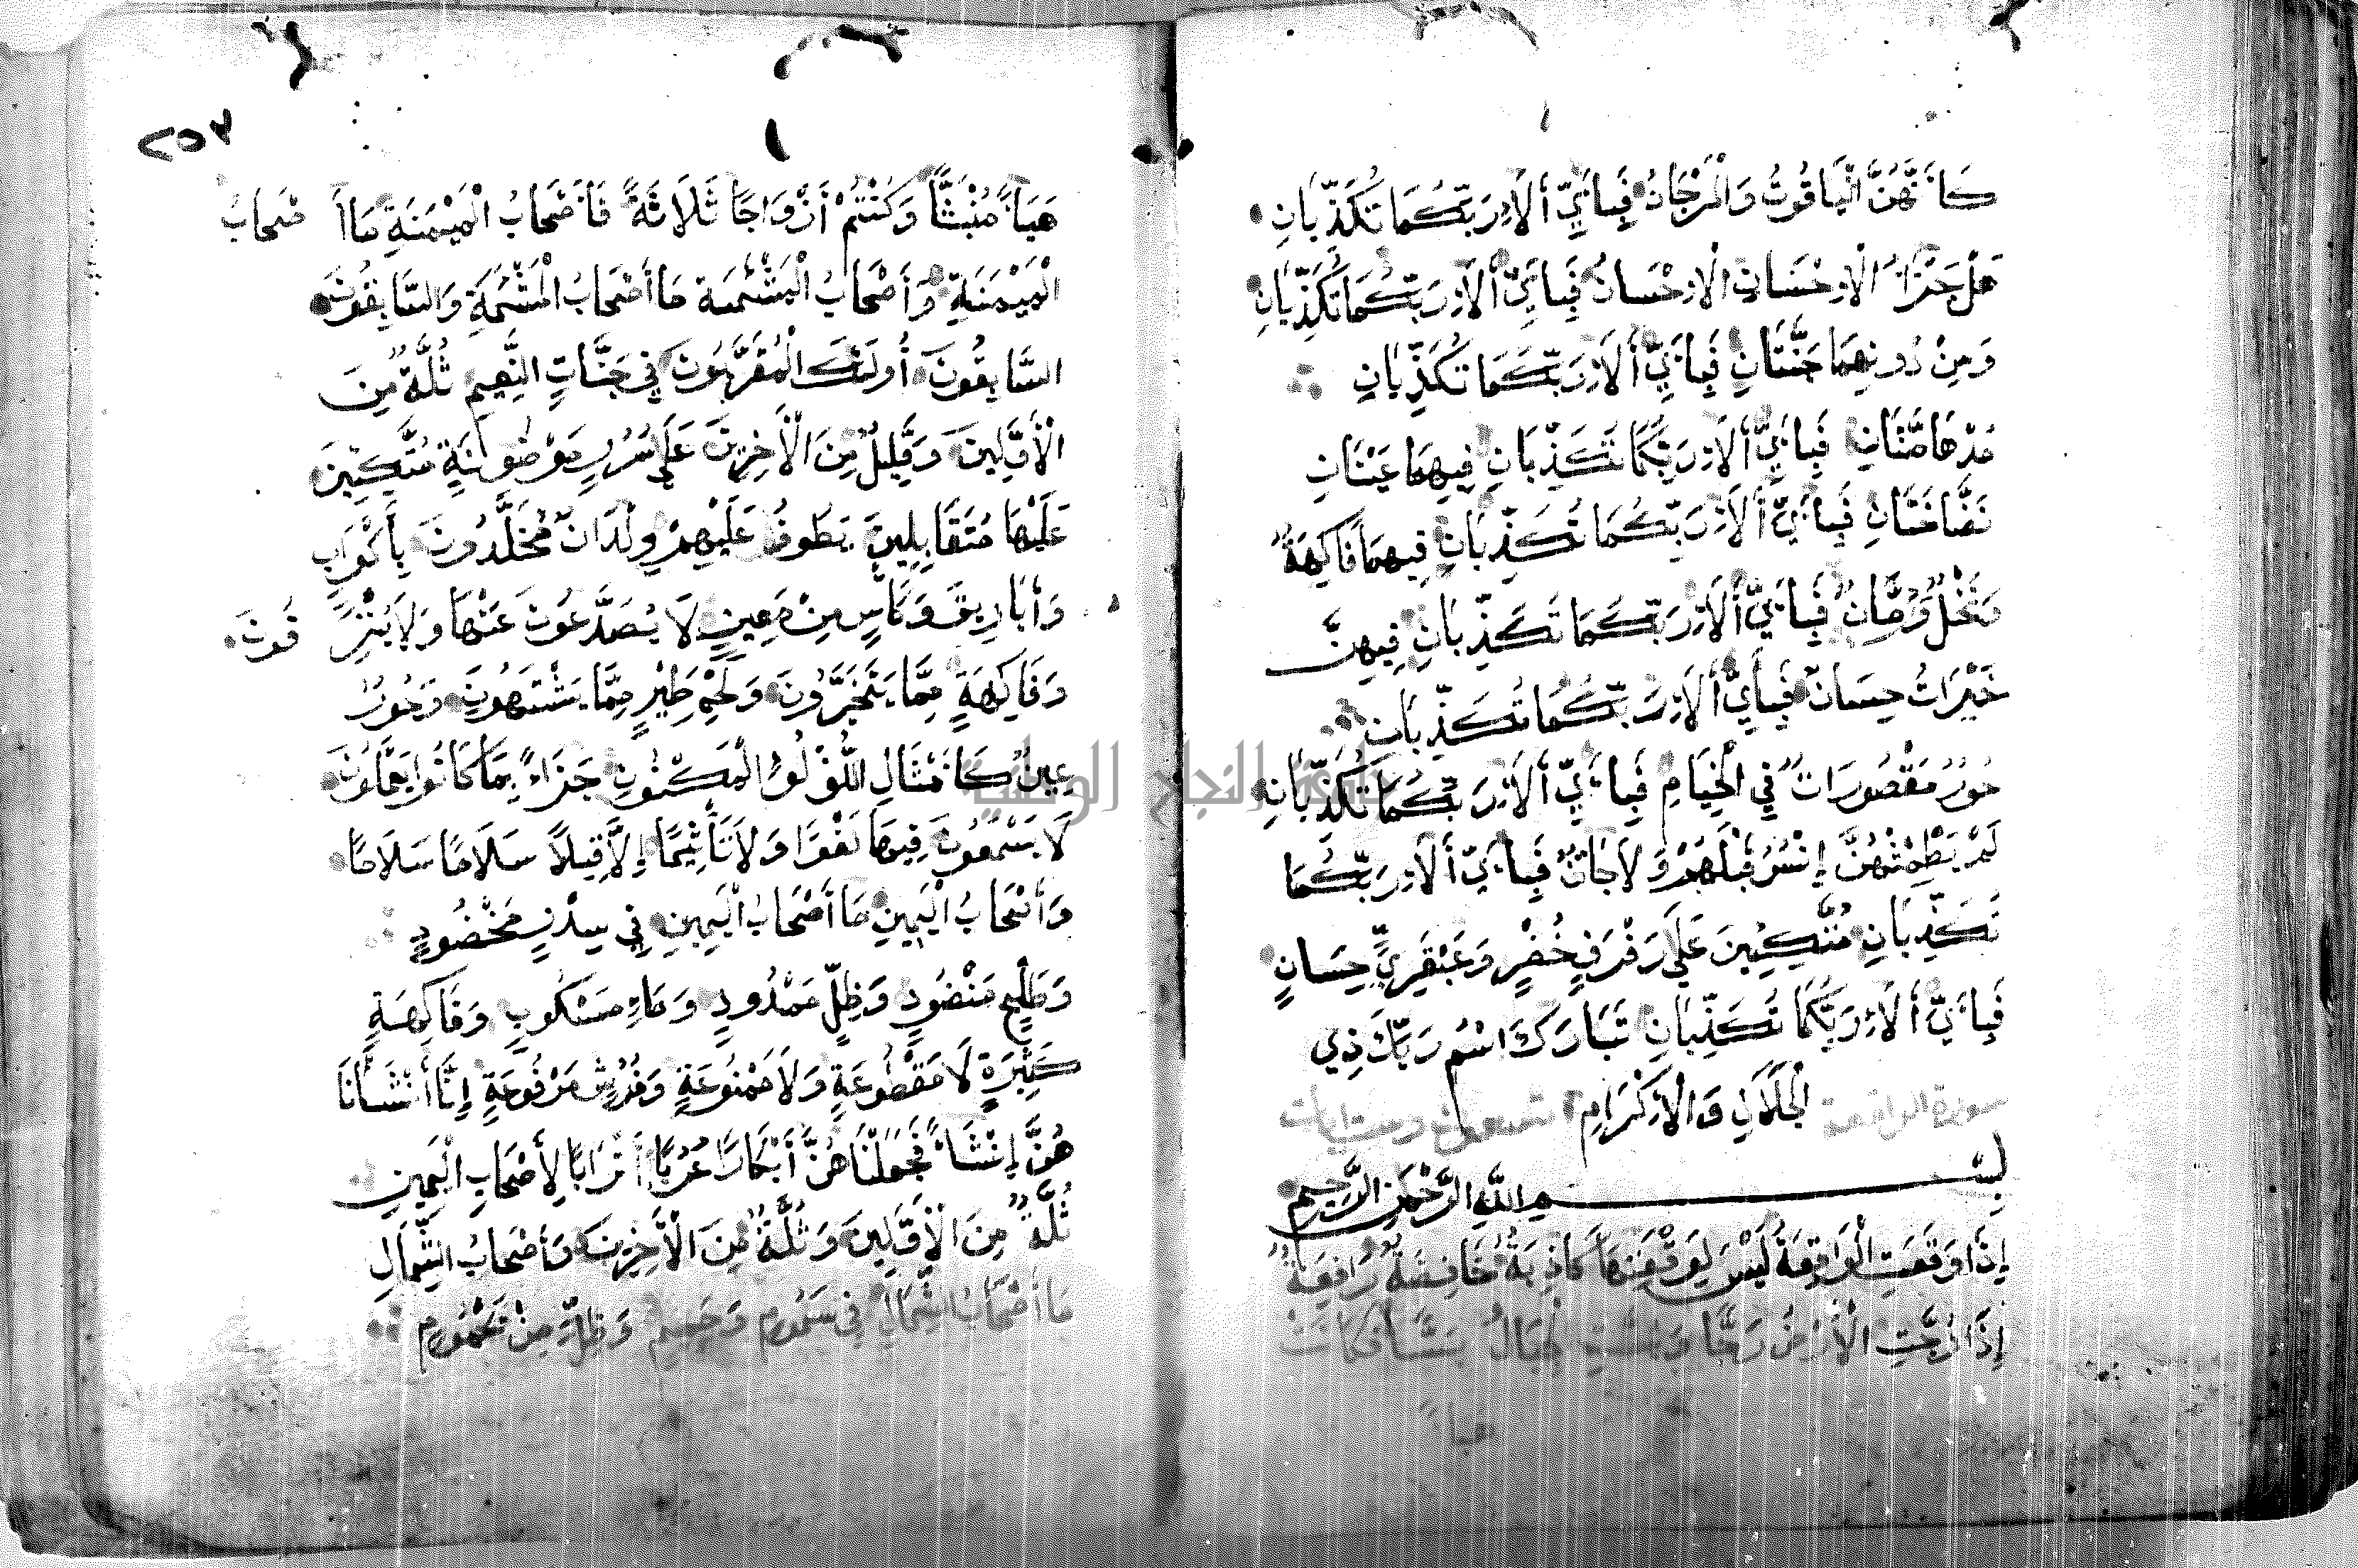 كَأَنَّهُنَّ الْيَاقُوتُ وَالْمَرْجَانُ فَبِأَيِّ أَلَاءِ رَبِّكُمَا تُكَذِّبَانِ
هَلْ جَزَاءُ الْإِحْسَانِ إِلَّا الْإِحْسَانُ فَبِأَيِّ أَلَاءِ رَبِّكُمَا تُكَذِّبَانِ
وَمِنْ دُونِهِمَا جَنَّتَانِ فَبِأَيِّ أَلَاءِ رَبِّكُمَا تُكَذِّبَانِ
مُدْهَامَّتَانِ فَبِأَيِّ أَلَاءِ رَبِّكُمَا تُكَذِّبَانِ فِيهِمَا عَيْنَانِ
نَضَّاخَتَانِ فَبِأَيِّ أَلَاءِ رَبِّكُمَا تُكَذِّبَانِ فِيهِمَا فَاكِهَةٌ
وَنَخْلٌ وَرُمَّانٌ فَبِأَيِّ أَلَاءِ رَبِّكُمَا تُكَذِّبَانِ فِيهِنَّ
خَيْرَاتٌ حِسَانٌ فَبِأَيِّ أَلَاءِ رَبِّكُمَا تُكَذِّبَانِ
حُورٌ مَقْصُورَاتٌ فِي الْخِيَامِ فَبِأَيِّ أَلَاءِ رَبِّكُمَا تُكَذِّبَانِ
لَمْ يَطْمِثْهُنَّ إِنْسٌ قَبْلَهُمْ وَلَا جَانٌّ فَبِأَيِّ أَلَاءِ رَبِّكُمَا
تُكَذِّبَانِ مُتَّكِئِينَ عَلَى رَفْرَفٍ خُضْرٍ وَعَبْقَرِيٍّ حِسَانٍ
فَبِأَيِّ أَلَاءِ رَبِّكُمَا تُكَذِّبَانِ تَبَارَكَ اسْمُ رَبِّكَ ذِي
سورة الواقعة الْجَلَالِ وَالْإِكْرَامِ تسعون وست ايات
بِسْمِ اللَّهِ الرَّحْمَنِ الرَّحِيمِ
إِذَا وَقَعَتِ الْوَاقِعَةُ لَيْسَ لِوَقْعَتِهَا كَاذِبَةٌ خَافِضَةٌ رَافِعَةٌ
إِذَا رُجَّتِ الْأَرْضُ رَجًّا وَبُسَّتِ الْجِبَالُ بَسًّا فَكَانَتْ
هبا
٢٥٧
هَبَاءً مُنْبَثًّا وَكُنْتُمْ أَزْوَاجًا ثَلَاثَةً فَأَصْحَابُ الْمَيْمَنَةِ مَا أَصْحَابُ
الْمَيْمَنَةِ وَأَصْحَابُ الْمَشْئَمَةِ مَا أَصْحَابُ الْمَشْئَمَةِ وَالسَّابِقُونَ
السَّابِقُونَ أُولَئِكَ الْمُقَرَّبُونَ فِي جَنَّاتِ النَّعِيمِ ثُلَّةٌ مِنَ
الْأَوَّلِينَ وَقَلِيلٌ مِنَ الْأَخِرِينَ عَلَى سُرُرٍ مَوْضُونَةٍ مُتَّكِئِينَ
عَلَيْهَا مُتَقَابِلِينَ يَطُوفُ عَلَيْهِمْ وِلْدَانٌ مُخَلَّدُونَ بِأَكْوَابٍ
وَأَبَارِيقَ وَكَأْسٍ مِنْ مَعِينٍ لَا يُصَدَّعُونَ عَنْهَا وَلَا يُنْزِفُونَ
وَفَاكِهَةٍ مِمَّا يَتَخَيَّرُونَ وَلَحْمِ طَيْرٍ مِمَّا يَشْتَهُونَ وَحُورٌ
عِينٌ كَأَمْثَالِ اللُّؤْلُؤِ الْمَكْنُونِ جَزَاءً بِمَا كَانُوا يَعْمَلُونَ
لَا يَسْمَعُونَ فِيهَا لَغْوًا وَلَا تَأْثِيمًا إِلَّا قِيلًا سَلَامًا سَلَامًا
وَأَصْحَابُ الْيَمِينِ مَا أَصْحَابُ الْيَمِينِ فِي سِدْرٍ مَخْضُودٍ
وَطَلْحٍ مَنْضُودٍ وَظِلٍّ مَمْدُودٍ وَمَاءٍ مَسْكُوبٍ وَفَاكِهَةٍ
كَثِيرَةٍ لَا مَقْطُوعَةٍ وَلَا مَمْنُوعَةٍ وَفُرُشٍ مَرْفُوعَةٍ إِنَّا أَنْشَأْنَا
هُنَّ إِنْشَاءً فَجَعَلْنَاهُنَّ أَبْكَارًا عُرُبًا أَتْرَابًا لِأَصْحَابِ الْيَمِينِ
ثُلَّةٌ مِنَ الْأَوَّلِينَ وَثُلَّةٌ مِنَ الْأَخِرِينَ وَأَصْحَابُ الشِّمَالِ
مَا أَصْحَابُ الشِّمَالِ فِي سَمُومٍ وَحَمِيمٍ وَظِلٍّ مِنْ يَحْمُومٍ
جامعة النجاح الوطنية